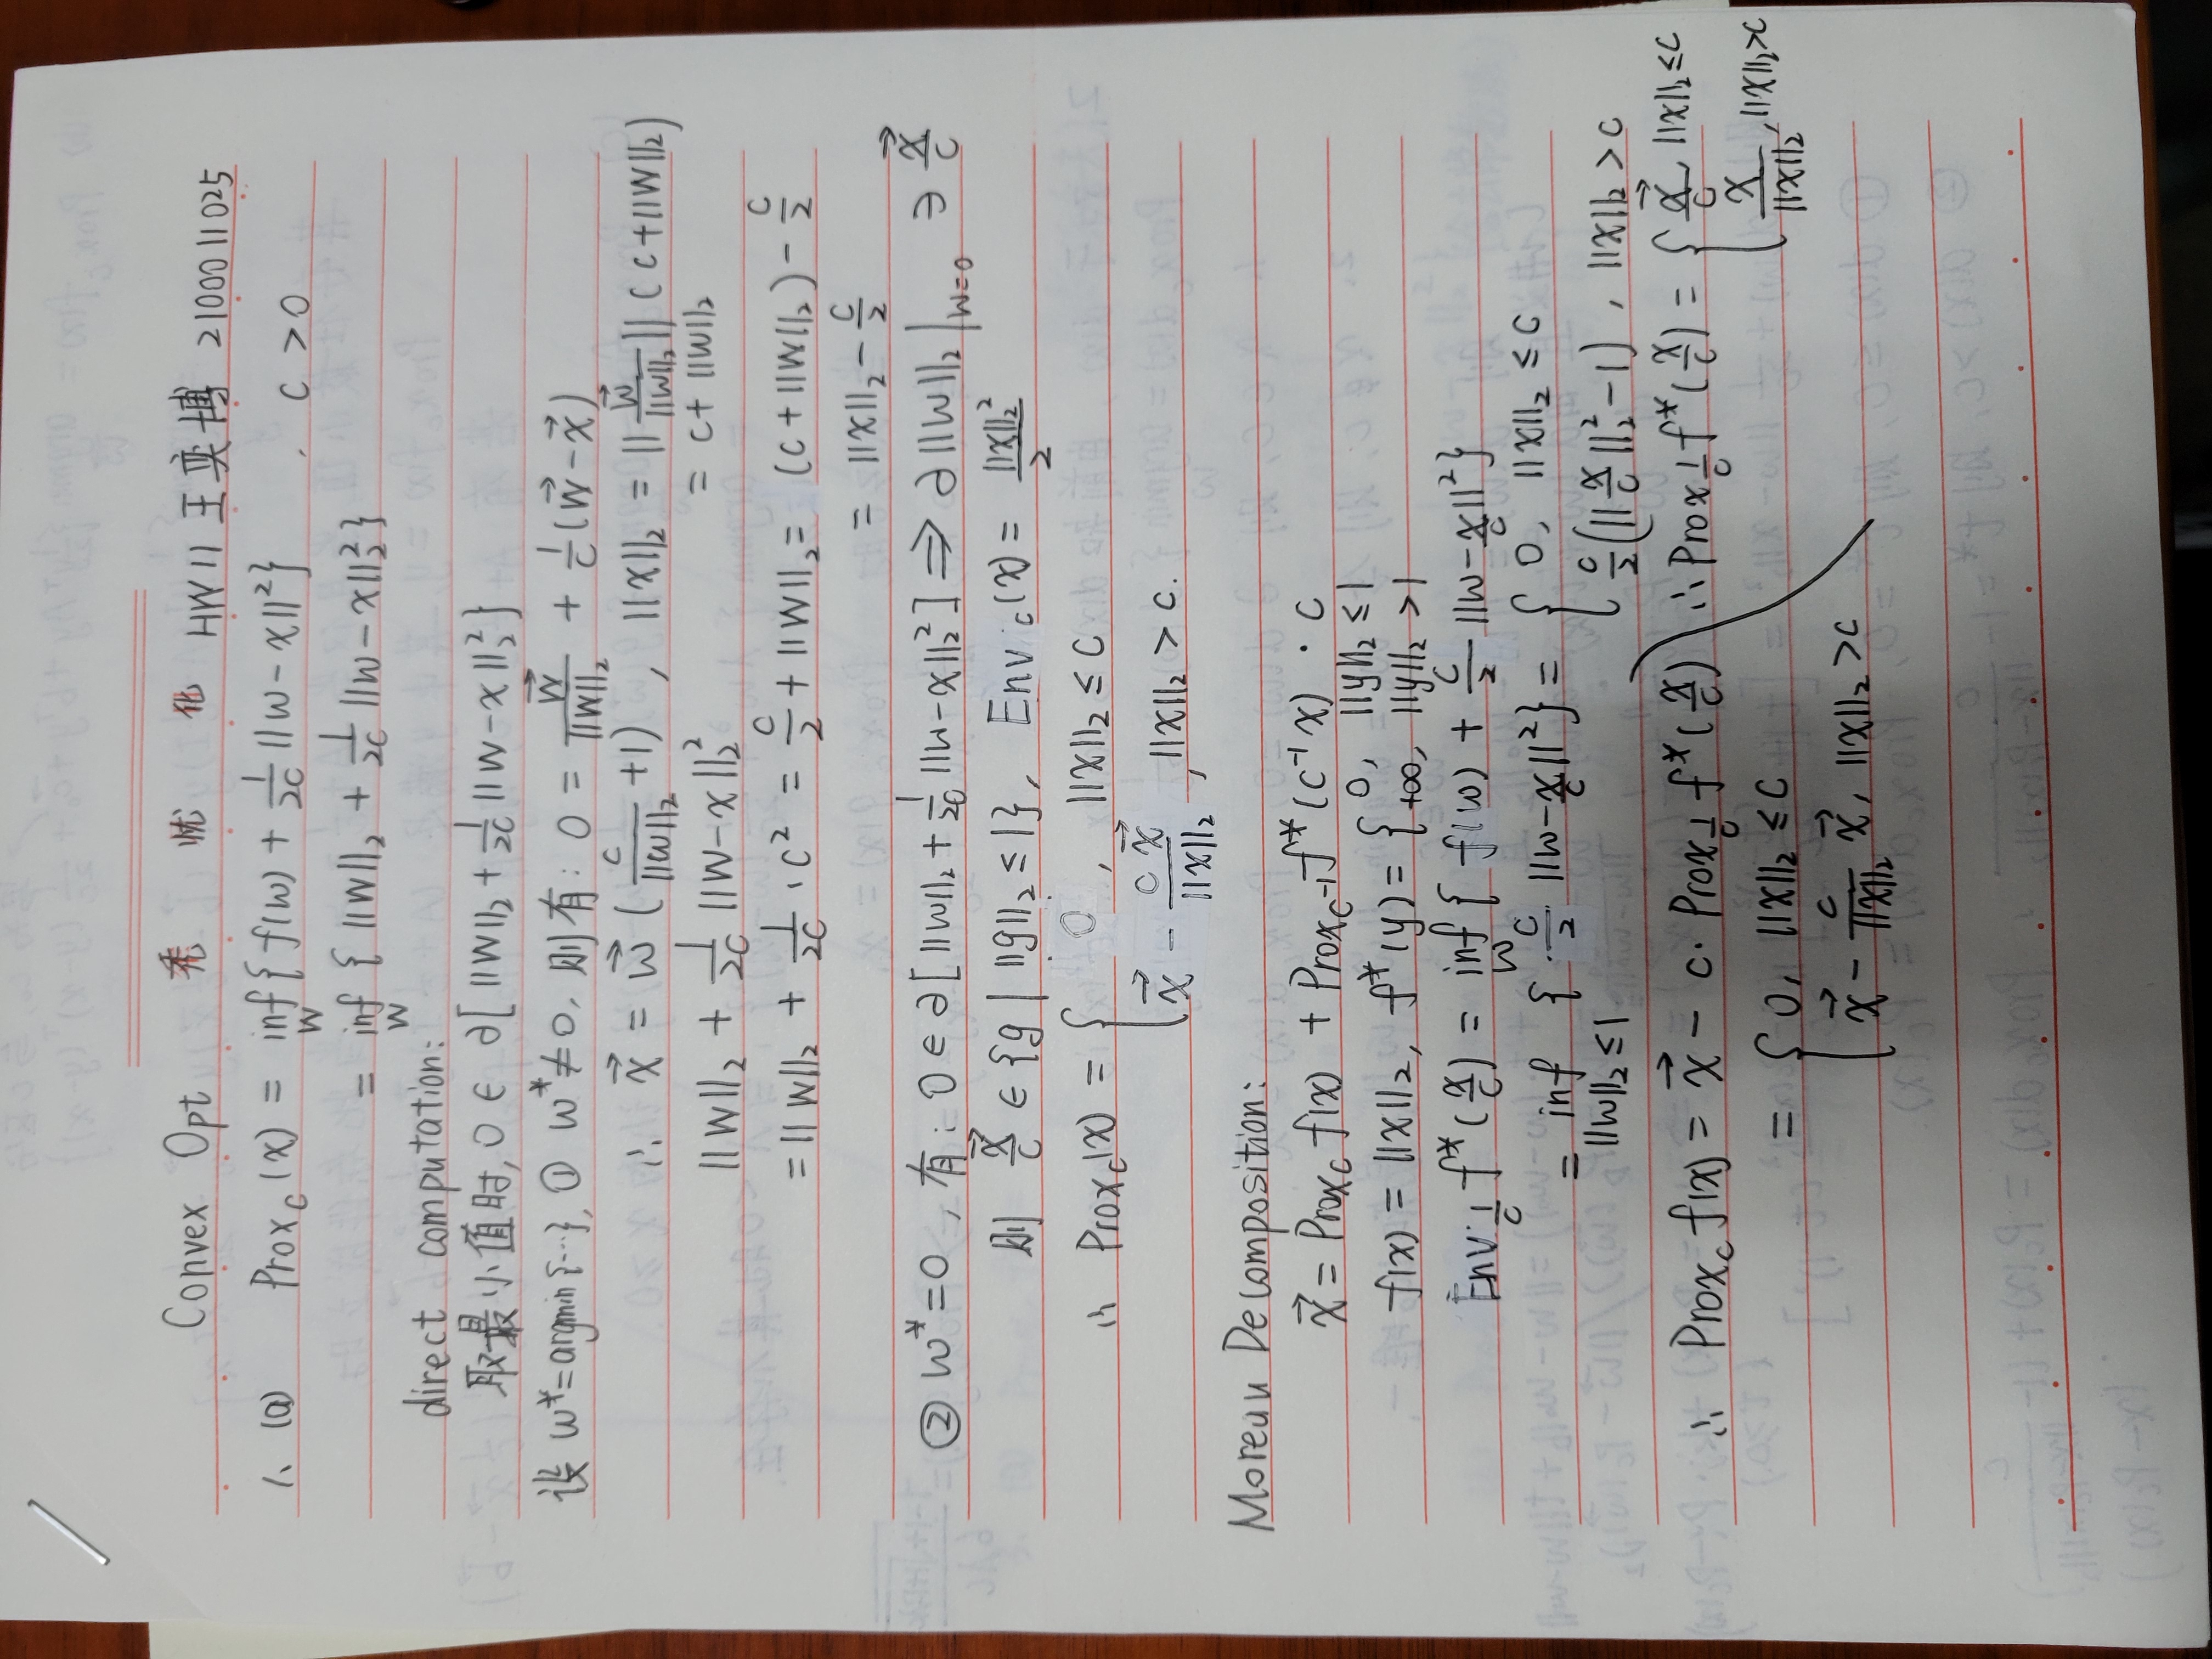 Convex Opt 秃 忧 化 HW11 王奕博 2100011025
1. (a) Prox_c(x) = inf_w{ f(w) + 1/2c ||w-x||² } , c > 0
= inf_w { ||w||₂ + 1/2c ||w-x||₂² }
direct computation:
取最小值时, 0 ∈ ∂[ ||w||₂ + 1/2c ||w-x||₂² }
设 w* = argmin{…}, ① w* ≠ 0, 则有: 0 = w⃗/||w||₂ + 1/c (w⃗ - x⃗)
∴ x⃗ = w⃗ ( c/||w||₂ + 1 ) , ||x||₂ = || w⃗/||w||₂ || ( c + ||w||₂ )
= c + ||w||₂
||w||₂ + 1/2c ||w-x||₂²
= ||w||₂ + 1/2c · c² = c/2 + ||w||₂ = (c + ||w||₂) - c/2
= ||x||₂ - c/2
② w* = 0 , 有: 0 ∈ ∂[ ||w||₂ + 1/2c ||w-x||₂² ] ⟹ ∂||w||₂ |_{w=0} ∋ x⃗/c
则 x⃗/c ∈ {g | ||g||₂ ≤ 1}, Env_c(x) = ||x||₂²/2
∴ Prox_c(x) = { 0 , ||x||₂ ≤ c
x⃗ - c x⃗/||x||₂ , ||x||₂ > c.
Moreau Decomposition:
x⃗ = Prox_c f(x) + Prox_{c⁻¹} f*(c⁻¹x) · c
f(x) = ||x||₂, f*(y) = { 0, ||y||₂ ≤ 1
+∞, ||y||₂ > 1
Env_{1/c} f*(x/c) = inf_w { f(w) + c/2 ||w - x/c||² }
= inf_{||w||₂ ≤ 1} { c/2 ||w - x/c||² } = { 0, ||x||₂ ≤ c
c/2 ( ||x/c||₂² - 1 ) , ||x||₂ > c
∴ Prox_c f(x) = x⃗ - c · Prox_{1/c} f*(x/c)
= { 0, ||x||₂ ≤ c
x⃗ - c/||x||₂ x⃗, ||x||₂ > c
∴ Prox_{1/c} f*(x/c) = { x⃗/c, ||x||₂ ≤ c
x/||x||₂, ||x||₂ > c